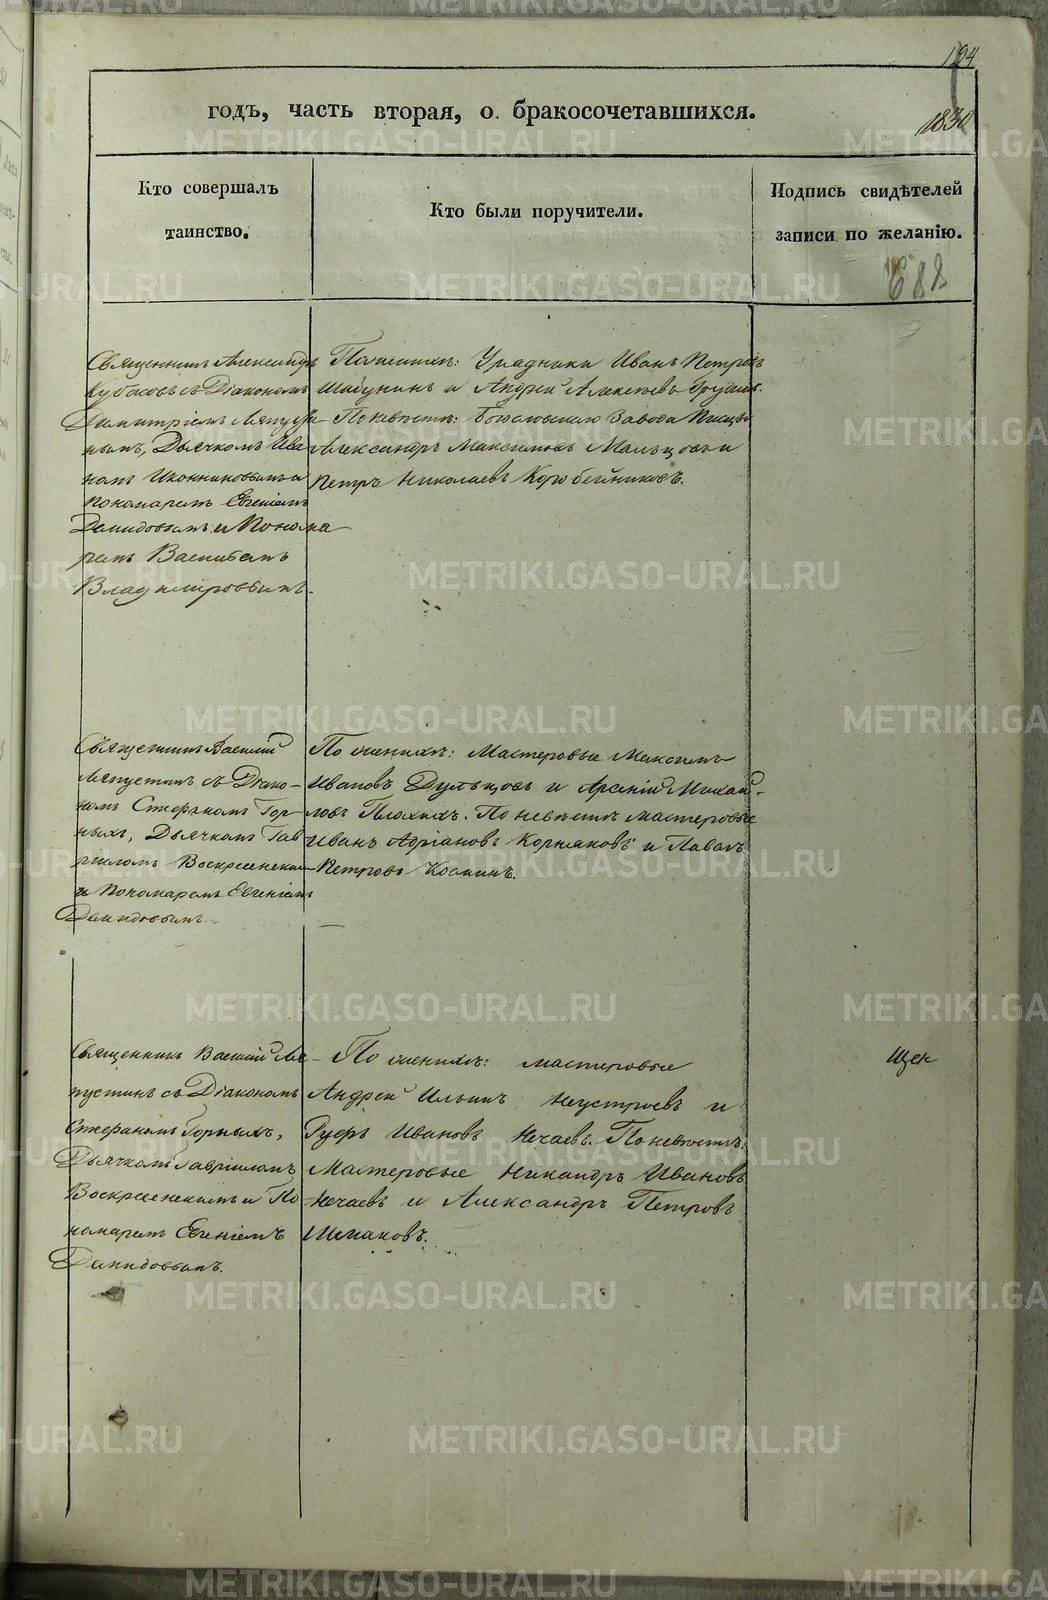 194
годъ, часть вторая, о бракосочетавшихся.
1830
Кто совершалъ
таинство.
Кто были поручители.
Подпись свидѣтелей
записи по желанію.
Священникъ Александръ
Кубасовъ съ Діакономъ
Димитріемъ Ляпусти-
нымъ, Дьячкомъ Ива
номъ Иконниковымъ и
пономаремъ Евгеніемъ
Давидовымъ и Понома
ремъ
Владиміровымъ.
По женихѣ: Урядники Иванъ Петровъ
Шабунинъ и Андрей Алексѣевъ
По невѣстѣ: Завода
Александръ Максимовъ Мальцовъ и
Петръ Николаевъ Коробейниковъ.
Священникъ Василій
Ляпустинъ съ Діако-
номъ Стефаномъ Гор-
ныхъ, Дьячкомъ Гав
ріиломъ Воскресенским
и Пономаремъ Евгеніемъ
Давидовымъ
По женихѣ: Мастеровые Максимъ
Ивановъ Дульцовъ и Арсеній Михай-
ловъ Плохихъ. По невѣстѣ мастеровые
Иванъ Адріановъ Корняковъ и Павелъ
Петровъ Косминъ.
Священникъ Василій Ля-
пустинъ съ Діакономъ
Стефаномъ Горныхъ,
Дьячкомъ Гавріиломъ
Воскресенскимъ и По
номаремъ Евгеніемъ
Давидовымъ.
По женихѣ: мастеровые
Андрей Ильинъ Неустроевъ и
Руфъ Ивановъ Нечаевъ. По невѣстѣ,
Мастеровые Никандръ Ивановъ
Нечаевъ и Александръ Петровъ
Шмаковъ.
METRIKI.GASO-URAL.RU